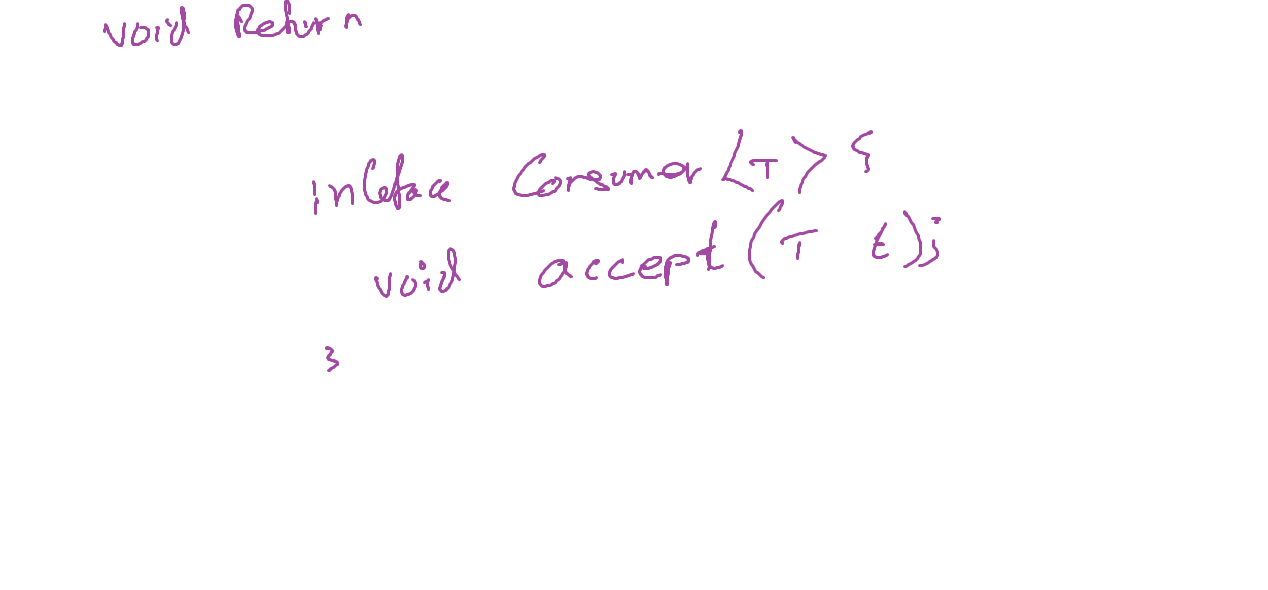 void Return
interface Consumer <T> {
void accept (T t);
}